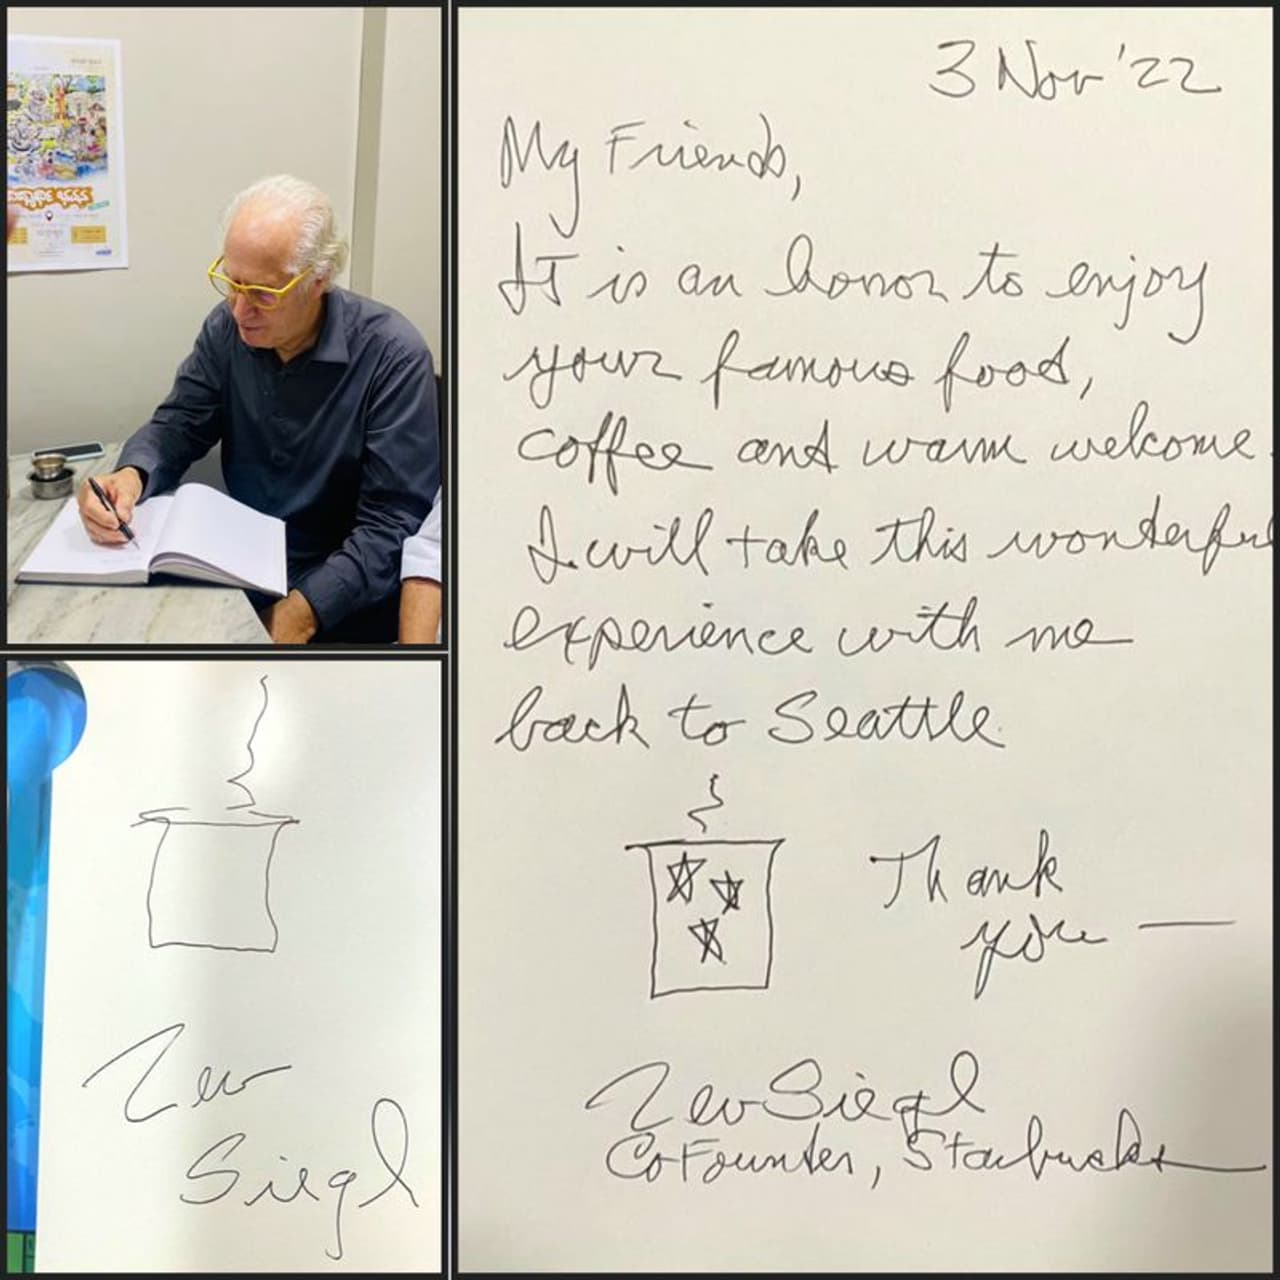 3 Nov '22
My Friends,
It is an honor to enjoy
your famous food,
coffee and warm welcome.
I will take this wonderful
experience with me
back to Seattle
Thank
you —
Zev Siegl
CoFounder, Starbucks
Zev
Siegl